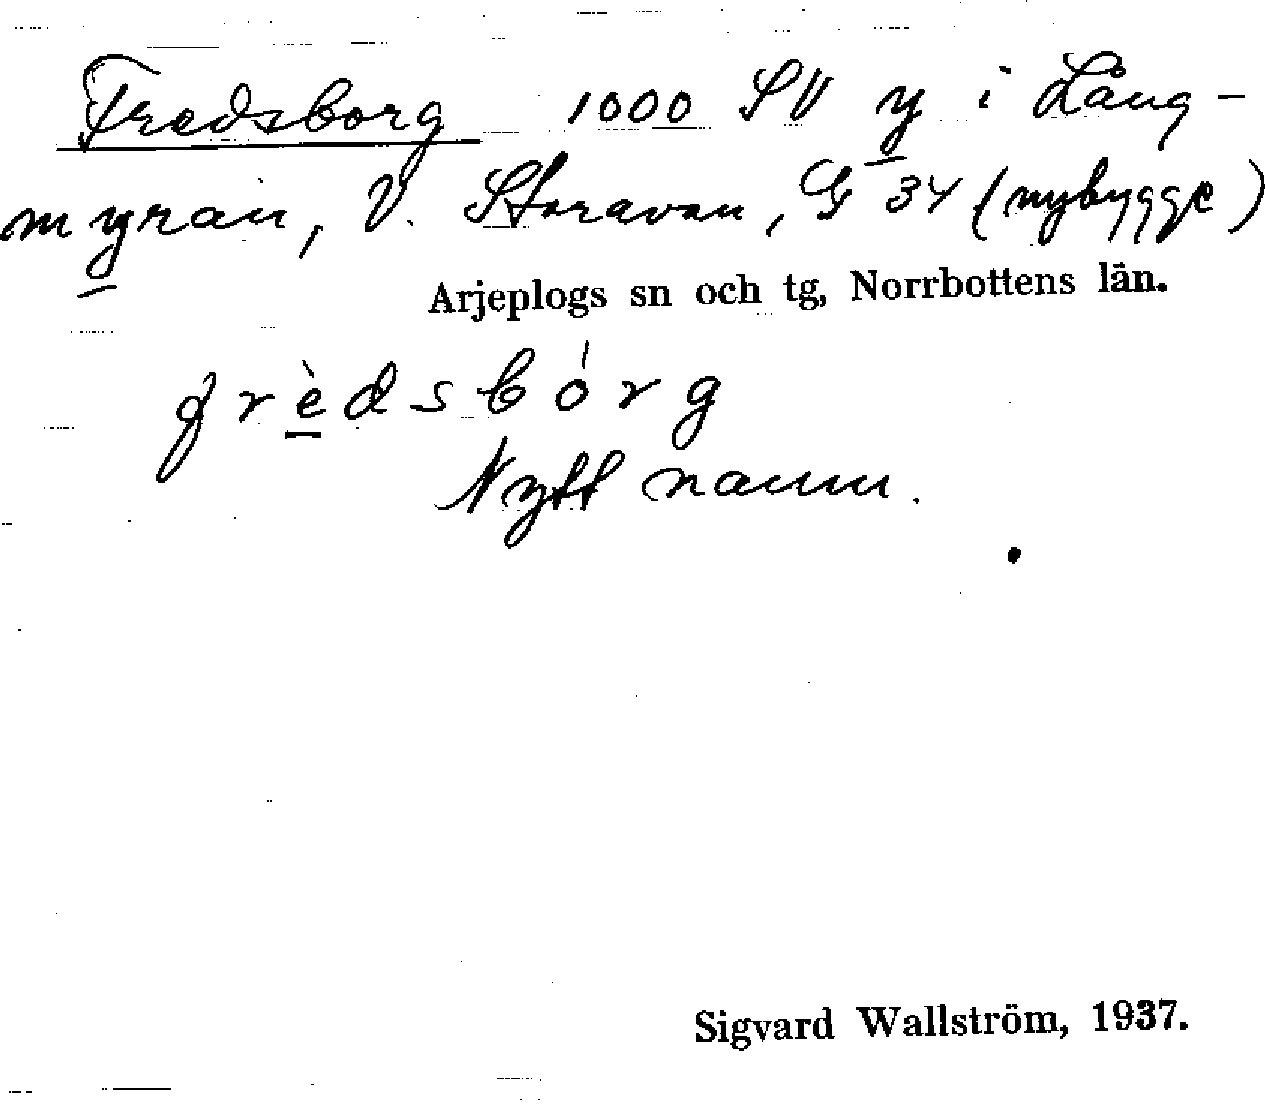 Fredsborg 1000 SV y i Lång-
myran, V. Storavan, G 34 (nybygge)
Arjeplogs sn och tg, Norrbottens län.
frèdsbórg
Nytt namn.
Sigvard Wallström, 1937.